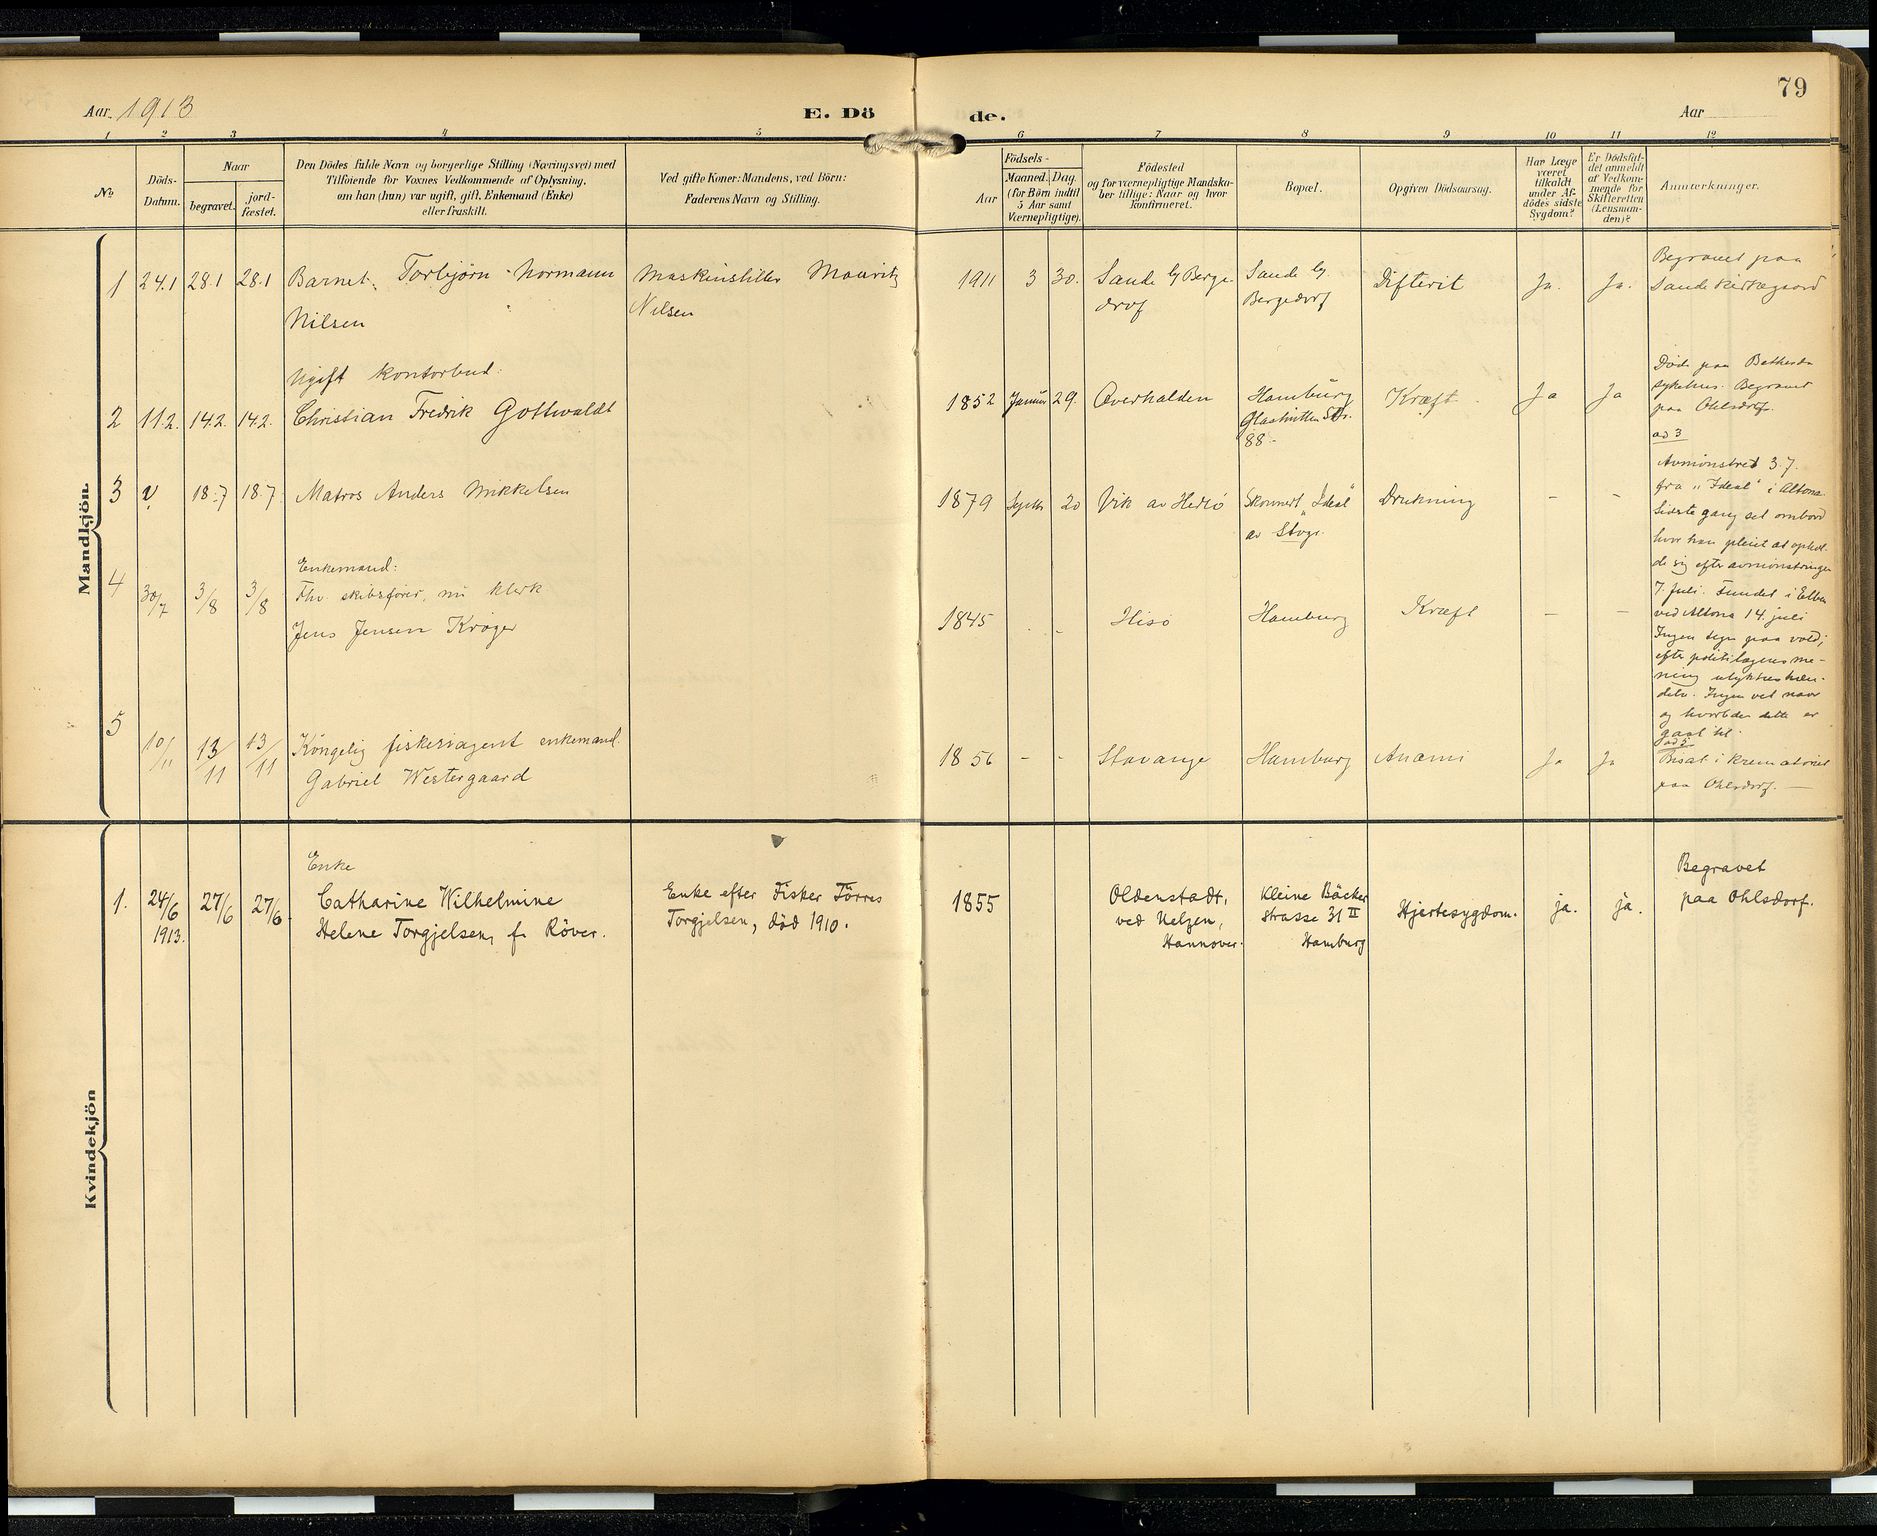 79
Aar 1913
E. Dö
de.
Aar
1 2 3 4 5 6 7 8 9 10 11 12
No
Döds-
Datum.
Naar
begravet.
jord-
fæstet.
Den Dödes fulde Navn og borgerlige Stilling (Næringsvei) med
Tilföiende for Voxnes Vedkommende af Oplysning,
om han (hun) var ugift, gift, Enkemand (Enke)
eller fraskilt.
Ved gifte Koner: Mandens, ved Börn:
Faderens Navn og Stilling.
Födsels-
Aar
Maaned. Dag.
(for Börn indtil
5 Aar samt
Værnepligtige).
Födested
og for værnepligtige Mandska-
ber tillige: Naar og hvor
konfirmeret.
Bopæl.
Opgiven Dödsaarsag.
Har Læge
været
tilkaldt
under Af-
dödes sidste
Sygdom?
Er Dödsfal-
det anmeldt
af Vedkom-
mende for
Skifteretten
(Lensman-
den)?
Anmærkninger.
Mandkjön.
1 24.1 28.1 28.1 Barnet. Torbjørn Normann
Nilsen
Maskinstiller Mouritz
Nilsen
1911 3 30. Sande b/ Berge-
dorf
Sande b/.
Bergedorf
Difterit Ja. Ja.
Begravet paa
Sande kirkegaard
Ugift kontorbud:
2 11.2. 14.2. 14.2. Christian Fredrik Gottwaldt
1852 Januar 29. Overhalden
Hamburg
Glashütten Str.
88.-
Kræft Ja Ja
Død paa Bethesda
sykehus. Begravet
paa Ohlsdorf.
3 v. 18.7 18.7 Matros Anders Mikkelsen
1879 Septb. 20 Vik av Hedrö
Skonnert "Ideal"
av Stvgr.
Drukning - -
ad 3
Avmönstret 3.7.
fra "Ideal" i Altona
Sidste gang set ombord
hvor han pleiet at ophol-
de sig efter avmönstringen
7. juli. Fundet i Elben
ved Altona 14. juli
Ingen tegn paa vold;
efter politilægens me-
ning ulykkeshæn-
delse. Ingen vet naar
og hvorledes dette er
gaat til.
Enkemand:
4 30/7 3/8 3/8 Fhv. skibsfører, nu klerk
Jens Jensen Krøger
1845 - - Hisö Hamburg Kræft - -
5 10/11 13/11 13/11 Kongelig fiskeriagent enkemand.
Gabriel Westergaard
1856 - - Stavanger Hamburg Anæmi Ja Ja
ad 5
Bisat i krematoriet
paa Ohlsdorf. -
Kvindekjön
Enke
1. 24/6 27/6 27/6 Catharine Wilhelmine
1913. Helene Torgjelsen, f. Röver.
Enke efter Fisker Törres
Torgjelsen, död 1910.
1855 Oldenstadt,
ved Uelzen,
Hannover.
Kleine Bäcker
strasse 31 II
Hamburg
Hjertesygdom. ja. ja.
Begravet
paa Ohlsdorf.